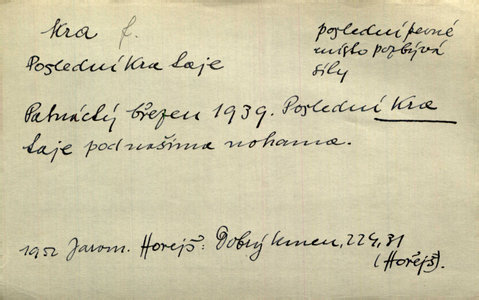 Kra f.
poslední pevné
místo pozbývá
síly
Poslední kra taje
Patnáctý březen 1939. Poslední kra
taje pod našima nohama.
1952 Jarom. Horejš: Dobrý kmen, 224, 31
(Hořejš).